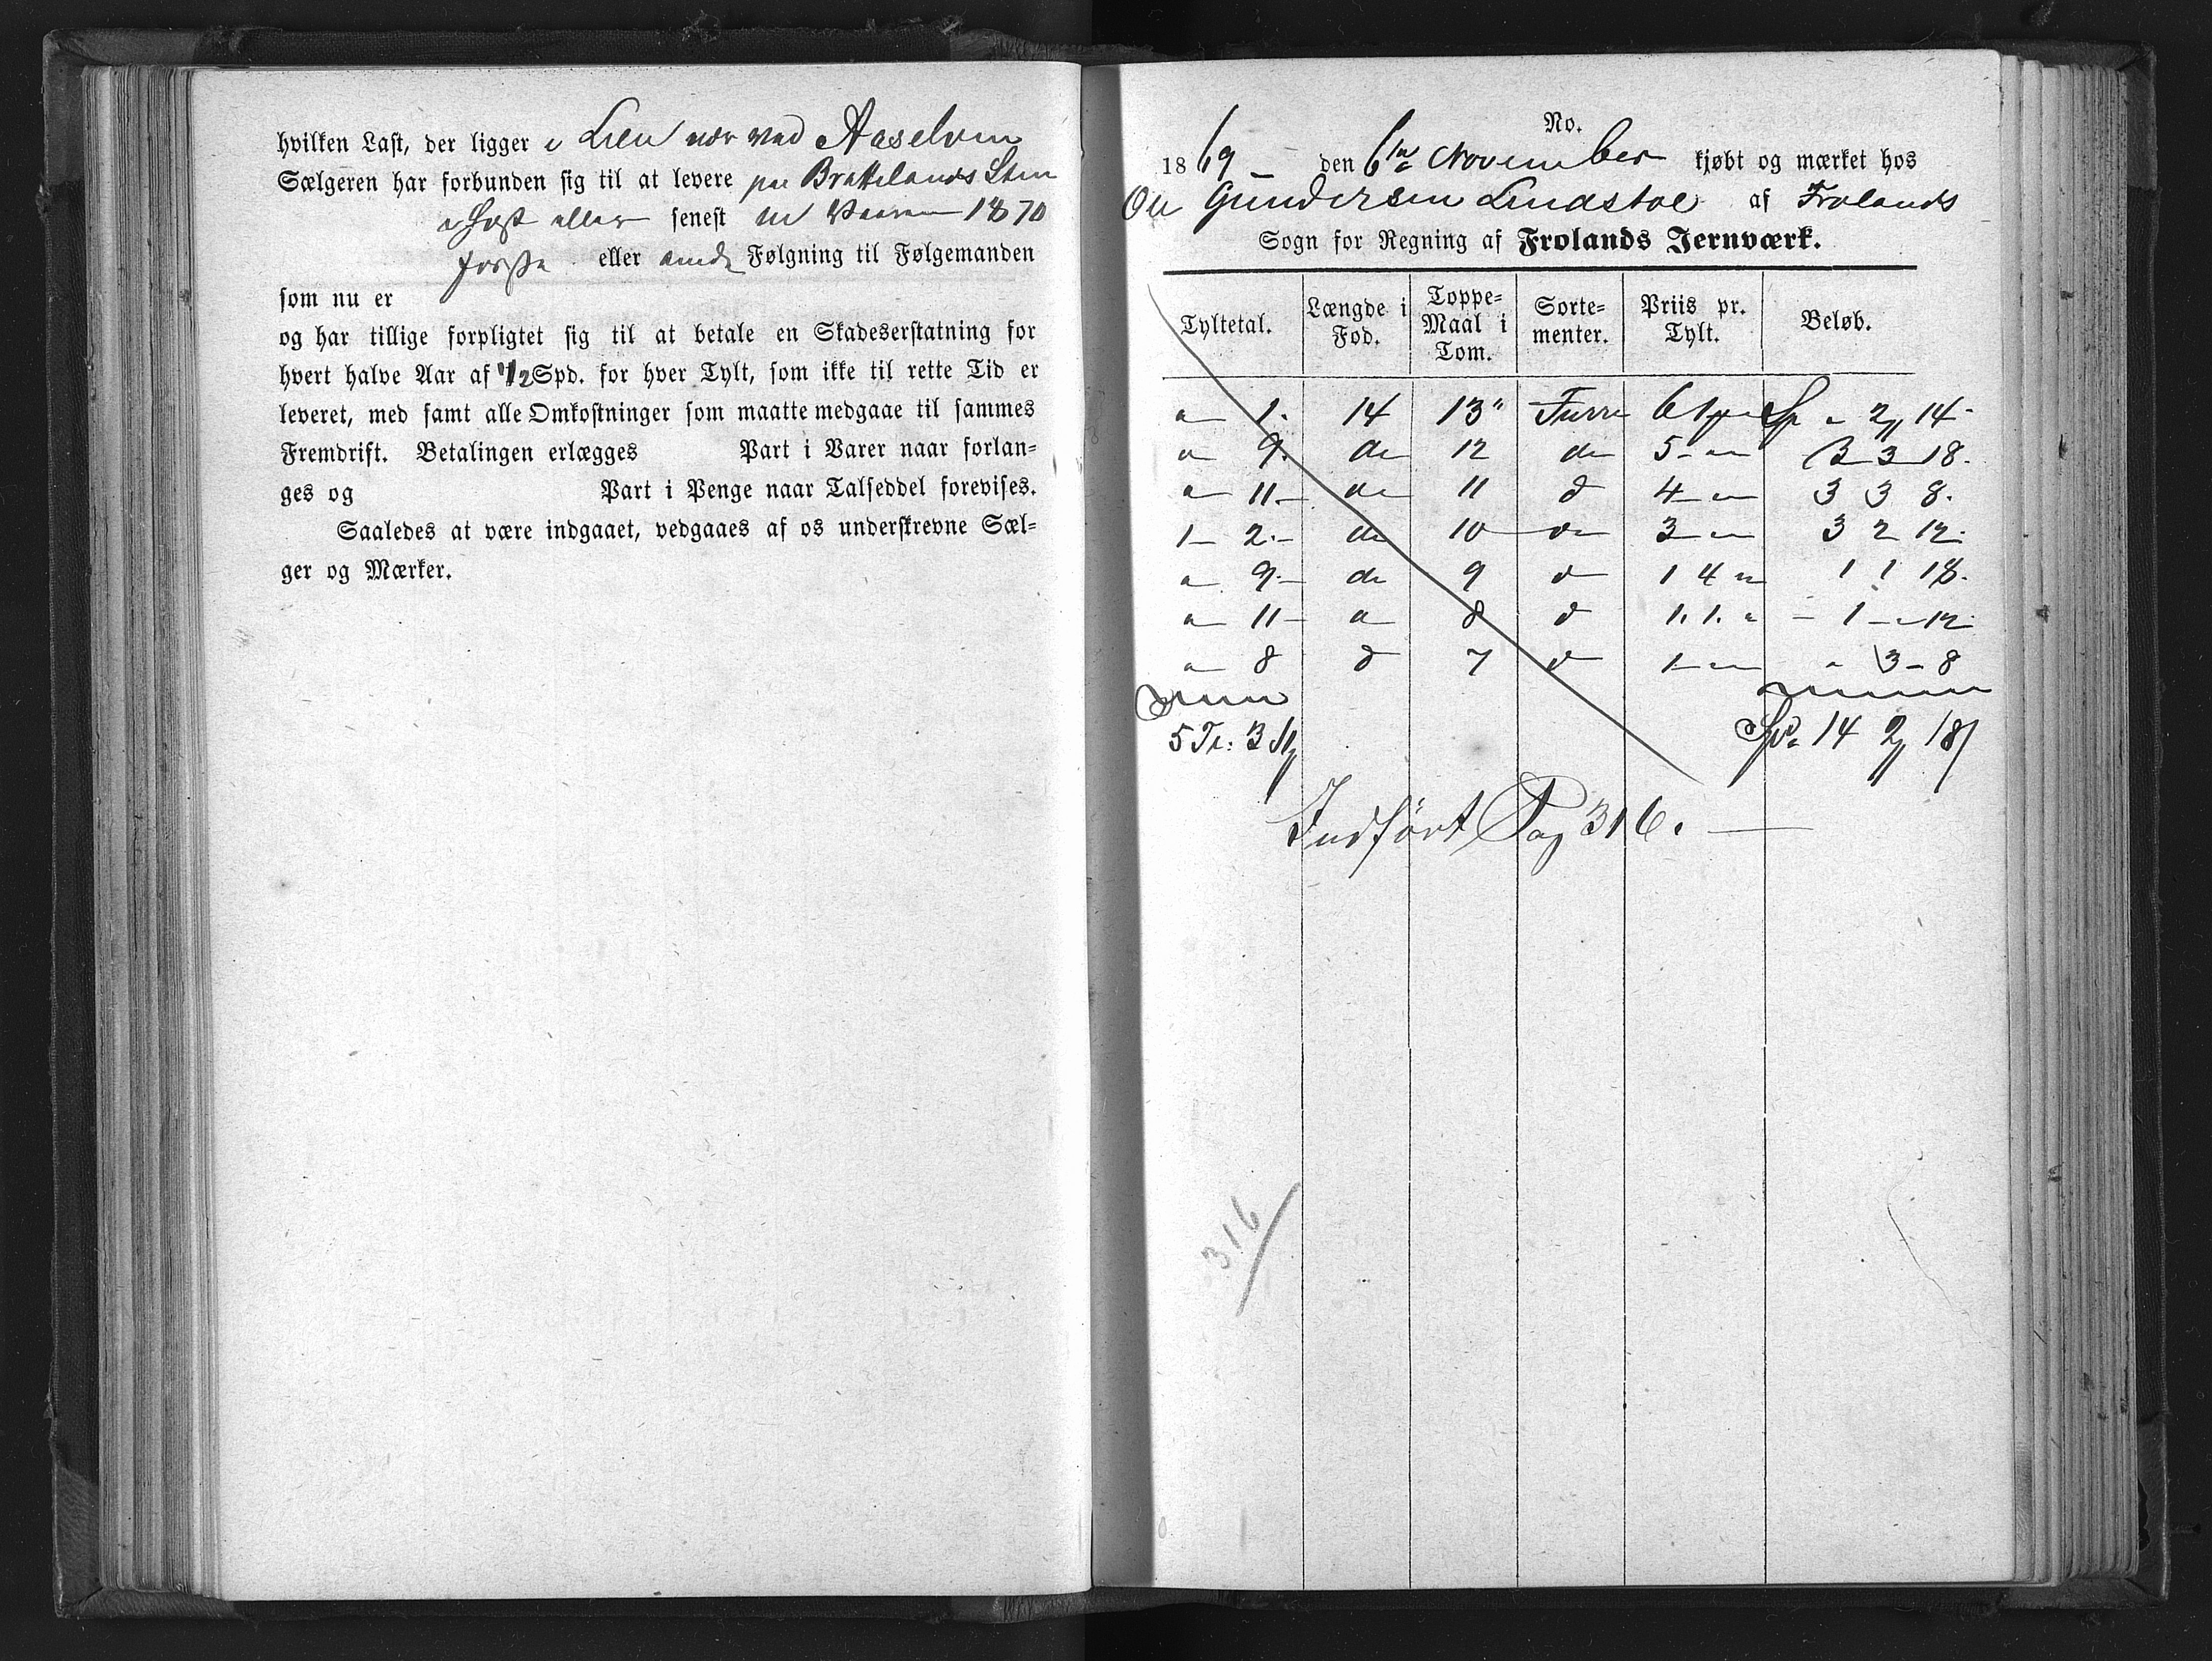 hvilken Last, der ligger i Lien nær ved Aaselven
Sælgeren har forbunden sig til at levere paa Brattelands Steen
i Høst eller senest til Vaaren 1870
første eller anden Følgning til Følgemanden
som nu er
og har tillige forpligtet sig til at betale en Skadeserstatning for
hvert halve Aar af 1/2 Spd. for hver Tylt, som ikke til rette Tid er
leveret, med samt alle Omkostninger som maatte medgaae til sammes
Fremdrift. Betalingen erlægges Part i Varer naar forlan-
ges og Part i Penge naar Talseddel forevises.
Saaledes at være indgaaet, vedgaaes af os underskrevne Sæl-
ger og Mærker.
No.
1869 - den 6te November kjøbt og mærket hos
Ole Gundersen Lindstøl af Frolands
Sogn for Regning af Frolands Jernværk.
Tyltetal. Længde i Fod. Toppe-Maal i Tom. Sorte-menter. Priis pr. Tylt. Beløb.
" 1. 14 13" Furre 6 Sp " 2 14
" 9. do 12 do 5 - " 3 3 18.
" 11. do 11 d 4 - " 3 3 8.
1 - 2. do 10 do 3 - " 3 2 12.
" 9. do 9 d 1 4 " 1 1 18.
" 11 d 8 d 1. 1. " 1 - 12
" 8 d 7 d 1 - " " 3 - 8
5 Tl: 3 St Spd 14 2 18
Indført Pag 316.
316